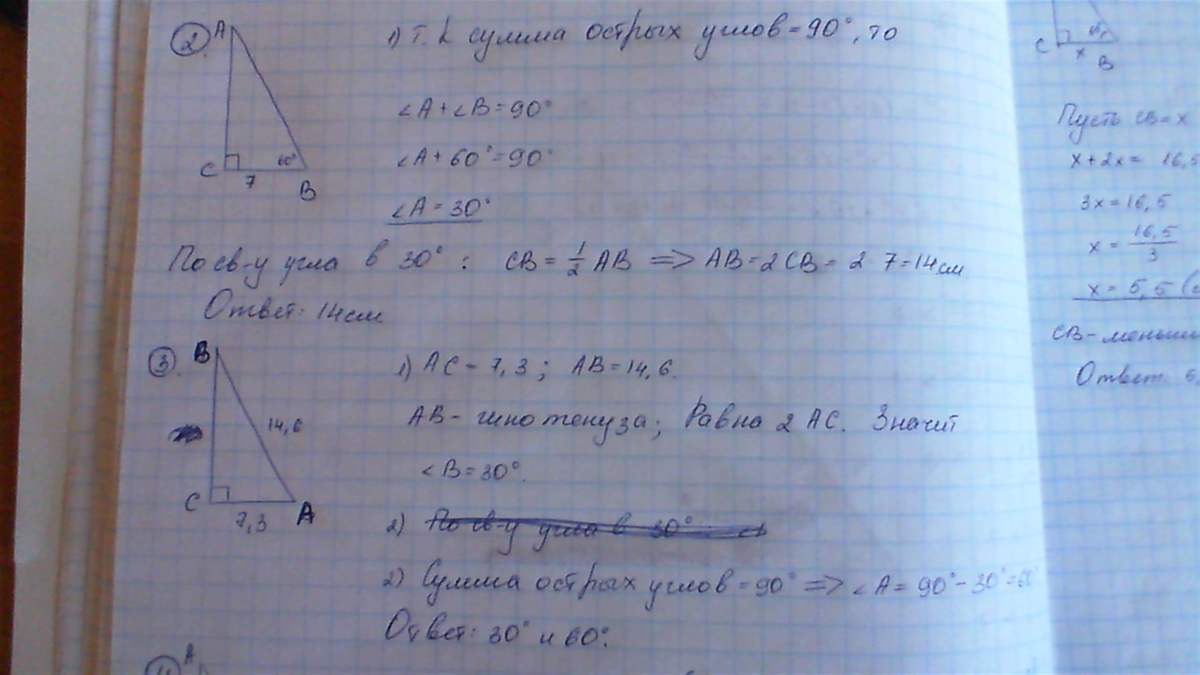 2 A
1) Т. к сумма острых углов = 90°, то
∠A + ∠B = 90°
∠A + 60° = 90°
60°
C 7 B
∠A = 30°
По св-у угла в 30° : CB = 1/2 AB => AB = 2CB = 2 7 = 14 см
Ответ: 14 см
3. B
1) AC = 7,3 ; AB = 14,6.
14,6
AB - гипотенуза; Равна 2 AC. Значит
∠B = 30°.
C 7,3 A
2) По св-у угла в 30°
2) Сумма острых углов = 90° => ∠A = 90° - 30° = 60°
Ответ: 30° и 60°.
A
C x B
Пусть CB = x
x + 2x = 16,5
3x = 16,5
x = 16,5/3
x = 5,5
CB - меньш
Ответ: